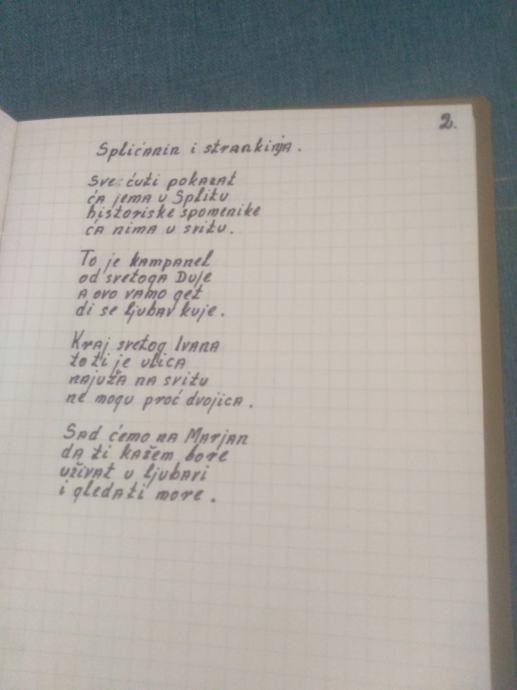 2.
Splićanin i strankinja.
Sve ćuti pokazat
ća jema u Splitu
historiske spomenike
ća nima u svitu.
To je kampanel
od svetoga Duje
a ovo vamo get
di se ljubav kuje.
Kraj svetog Ivana
to ti je ulica
najuža na svitu
ne mogu proć dvojica.
Sad ćemo na Marjan
da ti kažem bore
uživat u ljubavi
i gledati more.